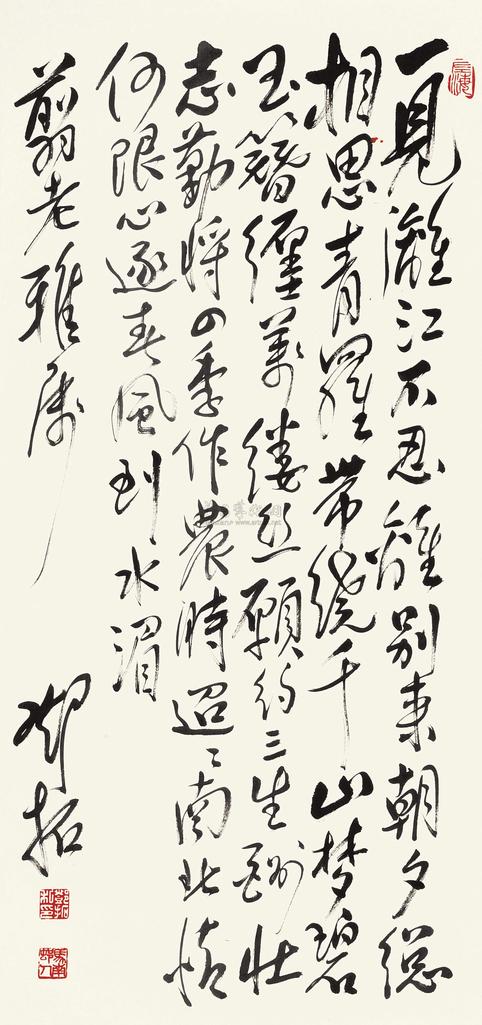 一見灕江不忍離別来朝夕總
相思青羅帶繞千山梦碧
玉簪纏萬縷絲願約三生酬壮
志勤將四季作農時迢〻南北情
何限心逐春風到水湄
翦老雅属
鄧拓